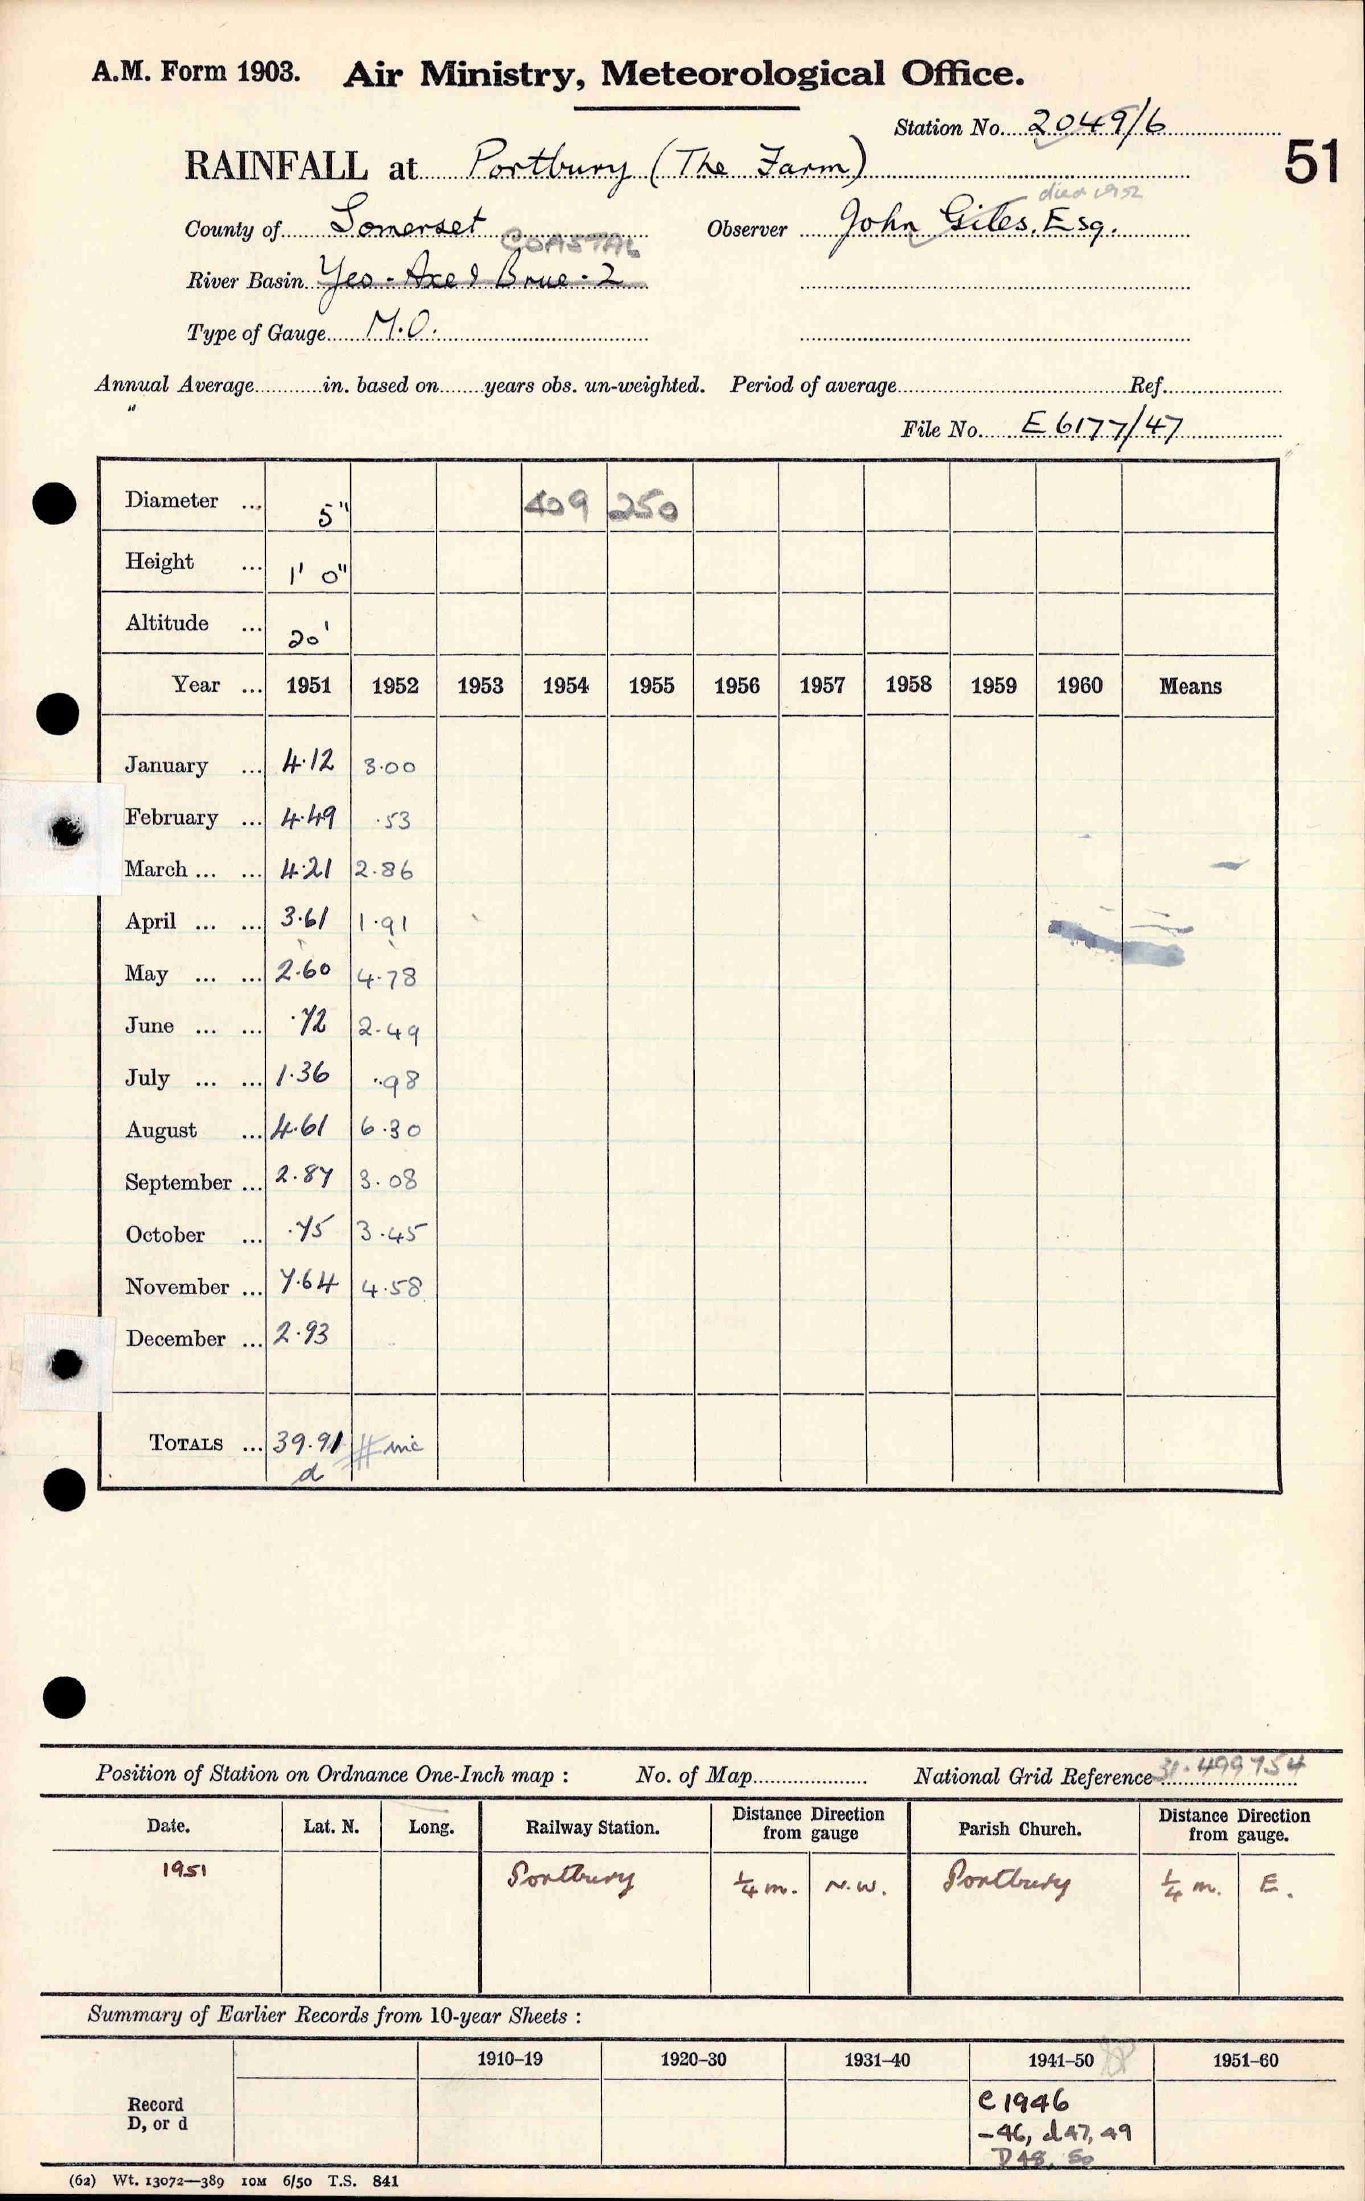 A.M. Form 1903. Air Ministry, Meteorological Office.
Station No. 2049/6
51
RAINFALL at Portbury (The Farm)
died 1952
County of Somerset Observer John Giles, Esq.
COASTAL
River Basin Yeo - Axe & Brue - 2
Type of Gauge M.O.
Annual Average in. based on years obs. un-weighted. Period of average Ref.
"
File No. E6177/47
Diameter ... 5" 409 250
Height ... 1' 0"
Altitude ... 20'
Year ... 1951 1952 1953 1954 1955 1956 1957 1958 1959 1960 Means
January ... 4.12 3.00
February ... 4.49 .53
March ... ... 4.21 2.86
April ... ... 3.61 1.91
May ... ... 2.60 4.78
June ... ... .72 2.49
July ... ... 1.36 .98
August ... 4.61 6.30
September ... 2.87 3.08
October ... .75 3.45
November ... 7.64 4.58
December ... 2.93
TOTALS ... 39.91 # inc
d
Position of Station on Ordnance One-Inch map : No. of Map National Grid Reference 31.499754
Date. Lat. N. Long. Railway Station. Distance Direction from gauge Parish Church. Distance Direction from gauge.
1951 Portbury ¼ m. N.W. Portbury ¼ m. E.
Summary of Earlier Records from 10-year Sheets :
1910–19 1920–30 1931–40 1941–50 1951–60
Record D, or d
e 1946
–46, d47, 49
D 48, 50
(62) Wt. 13072—389 10M 6/50 T.S. 841